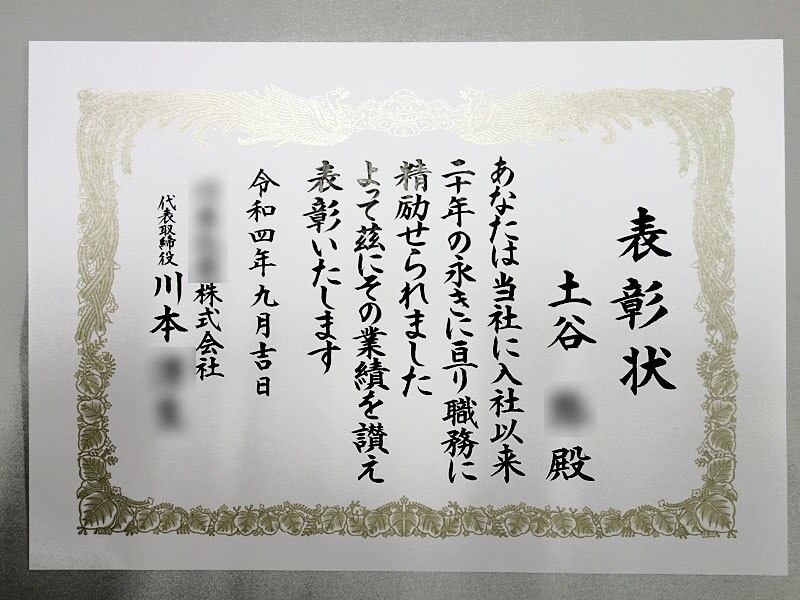 表彰状
土谷 殿
あなたは当社に入社以来
二十年の永きに亘り職務に
精励せられました
よって茲にその業績を讃え
表彰いたします
令和四年九月吉日
株式会社
代表取締役 川本